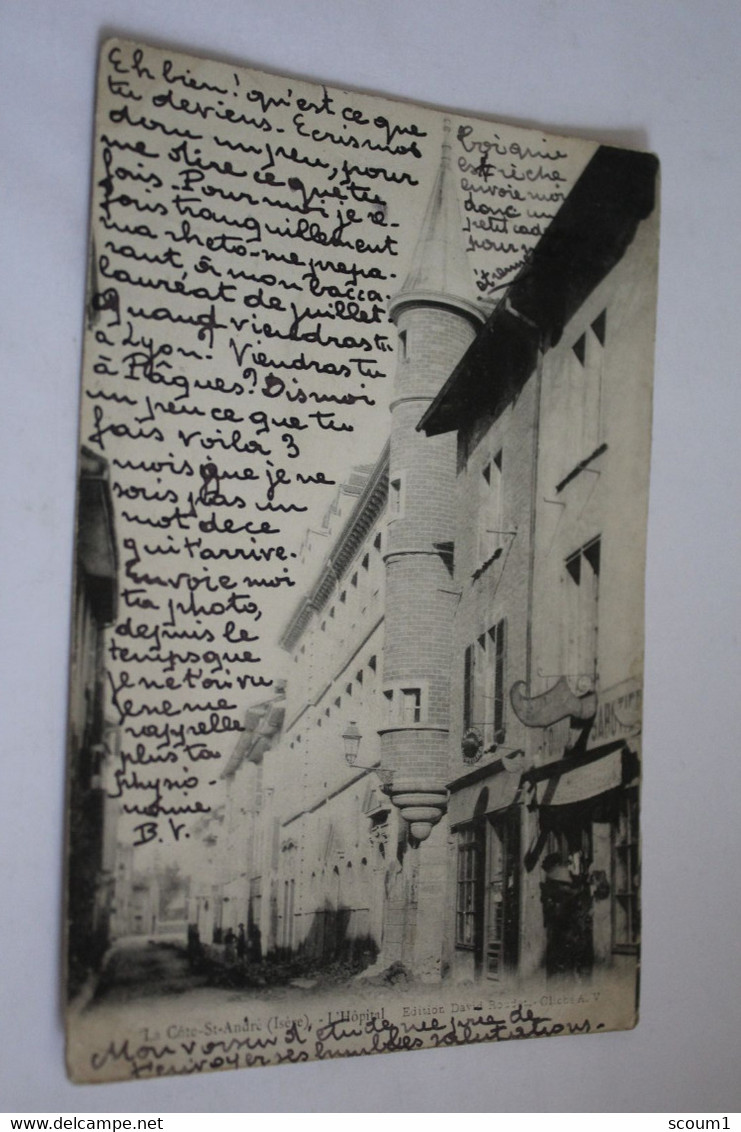 Eh bien! qu'est ce que
tu deviens. Ecris moi
donc un peu, pour
me dire ce que tu
fais. Pour moi je
fais tranquillement
ma rheto - me prépa-
rant, à mon bacca-
lauréat de juillet.
Quand viendras tu
à Lyon? Viendras tu
à Pâques? Dis moi
un peu ce que tu
fais voilà 3
mois que je ne
sais pas un
mot de ce
qui t'arrive.
Envoie moi
ta photo,
depuis le
temps que
je ne t'ai vu
je ne me
rappelle
plus ta
physio-
nomie
B.V.
Toi qui
es riche
envoie moi
donc un
petit
pour m
La Côte-St-André (Isère). - L'Hôpital Edition David Cliché A. V
Mon voisin d'étude me prie de
t'envoyer ses humbles salutations.
scoum1